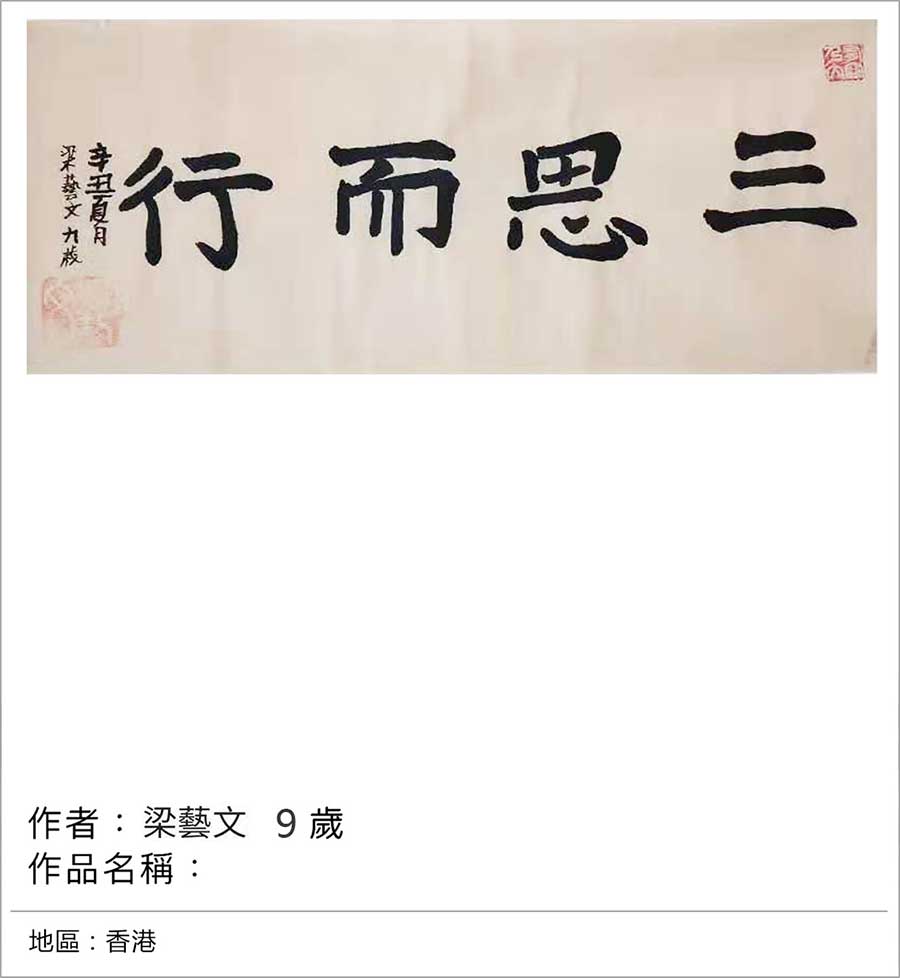 三思而行
辛丑夏月
梁藝文 九歲
作者：梁藝文 9 歲
作品名稱：
地區：香港